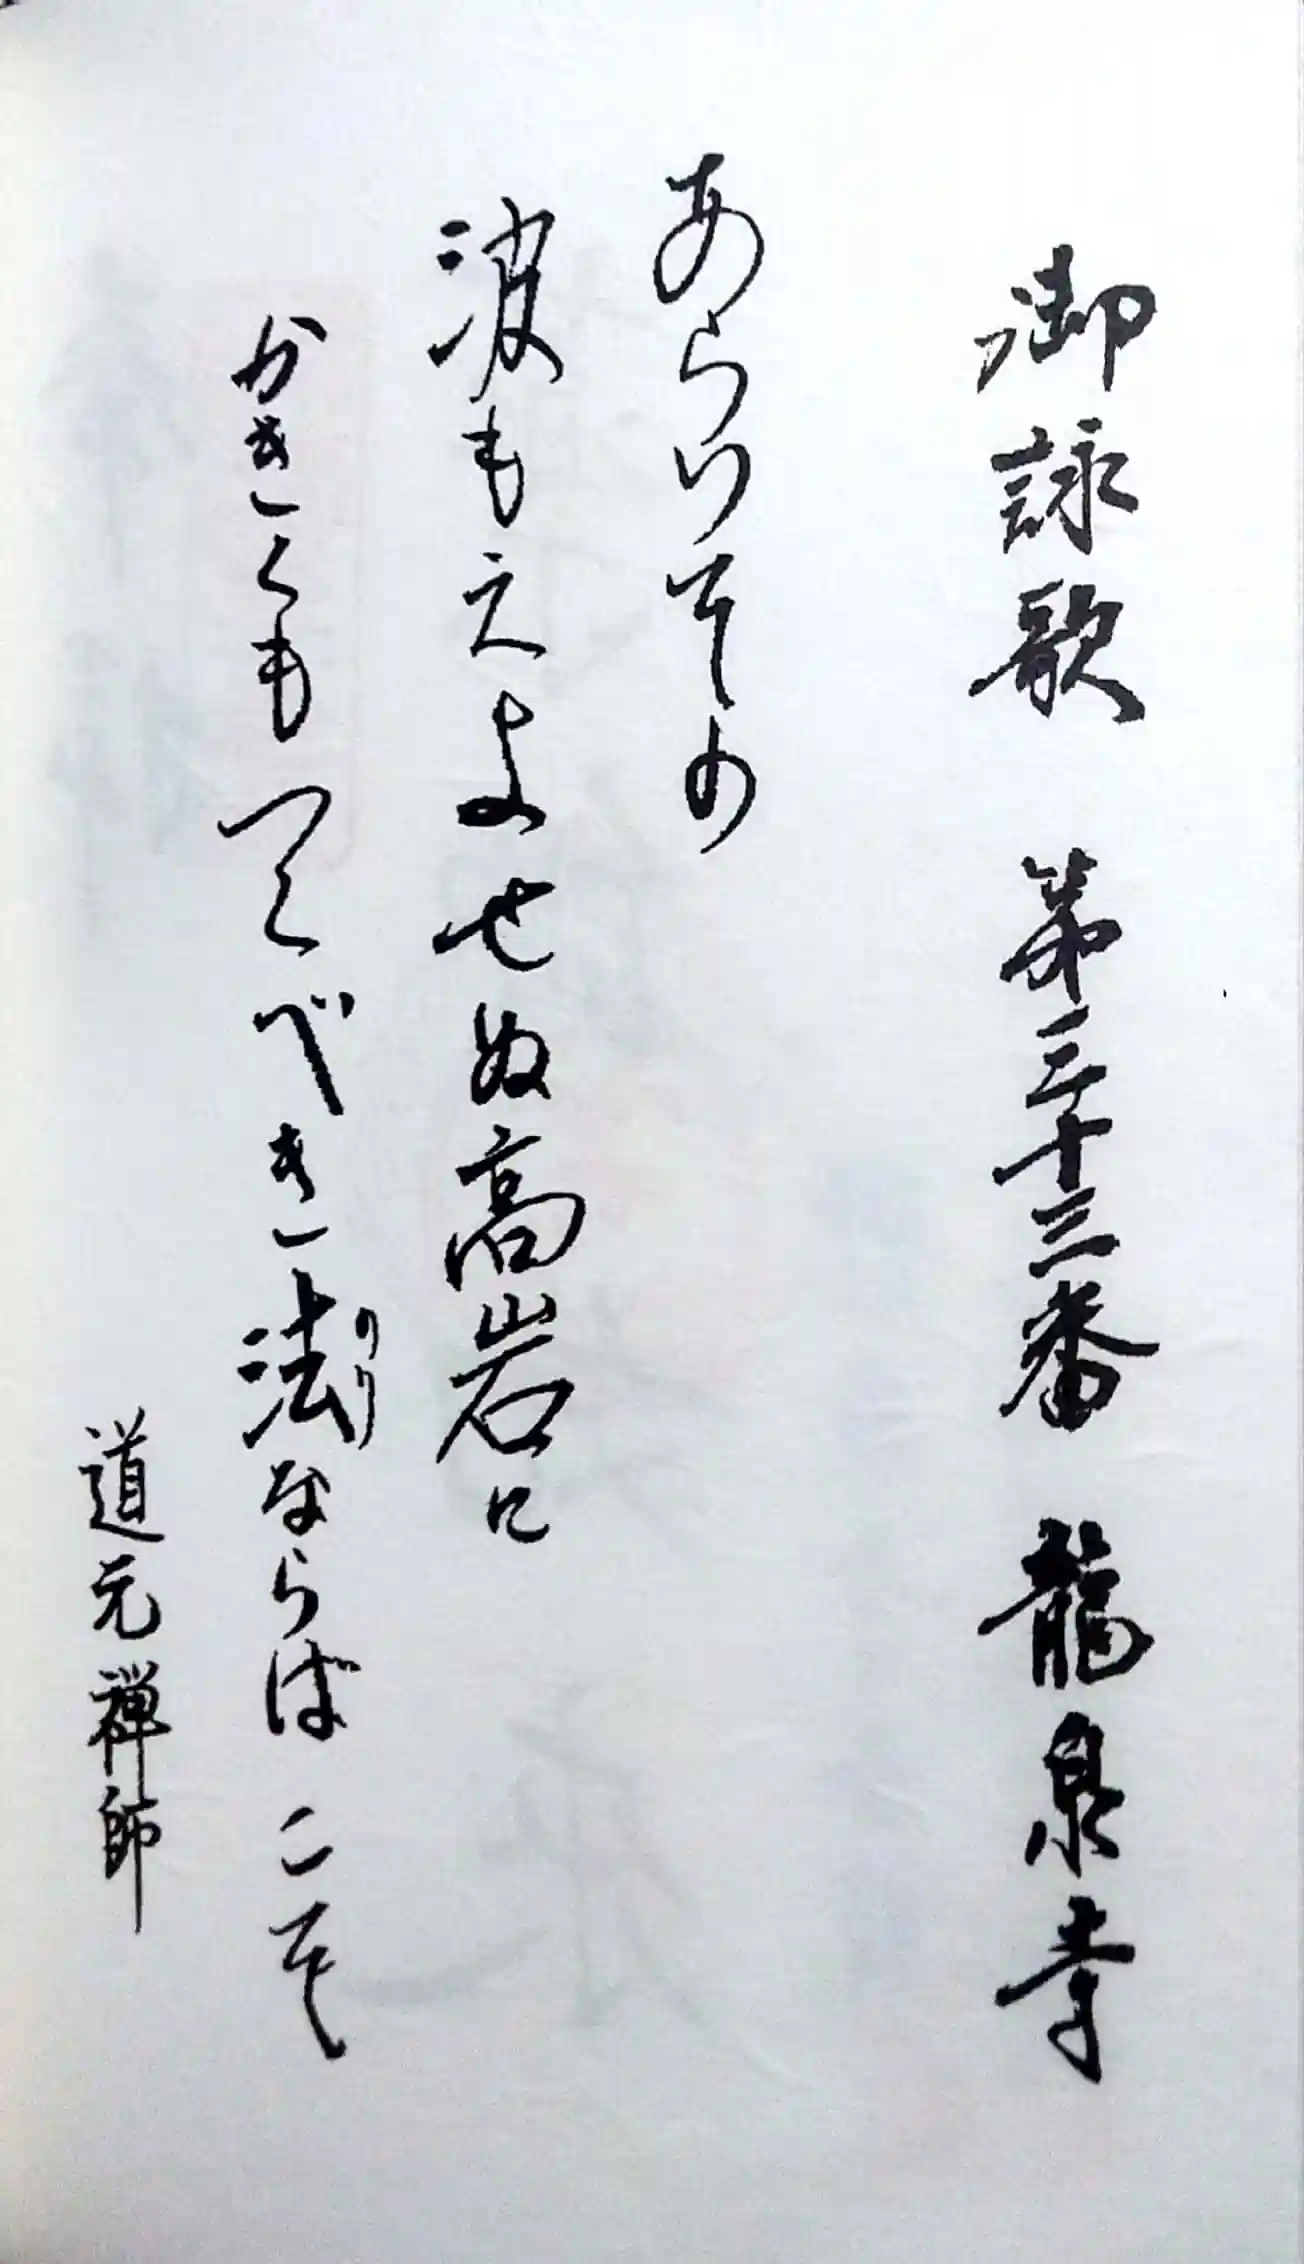 御詠歌 第三十三番 龍泉寺
あらいその
波もえよせぬ高岩に
かきくもつくべき法ならばこそ
のり
道元禅師